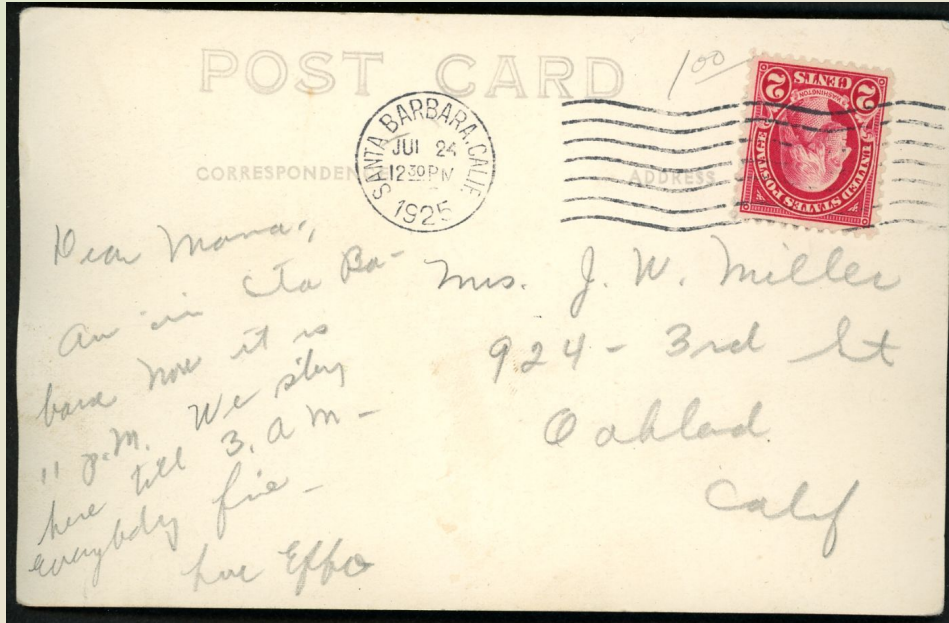 POST CARD
1 00
SANTA BARBARA, CALIF.
JUL 24
12 30 PM
1925
2 CENTS 2
WASHINGTON
UNITED STATES POSTAGE
CORRESPONDENCE
ADDRESS
Dear Mama,
Am in Sta Ba-
bara now it is
11 P.M. We stay
here till 3. A M -
everybody fine -
love
Mrs. J. W. Miller
924 - 3rd St
Oakland
Calif